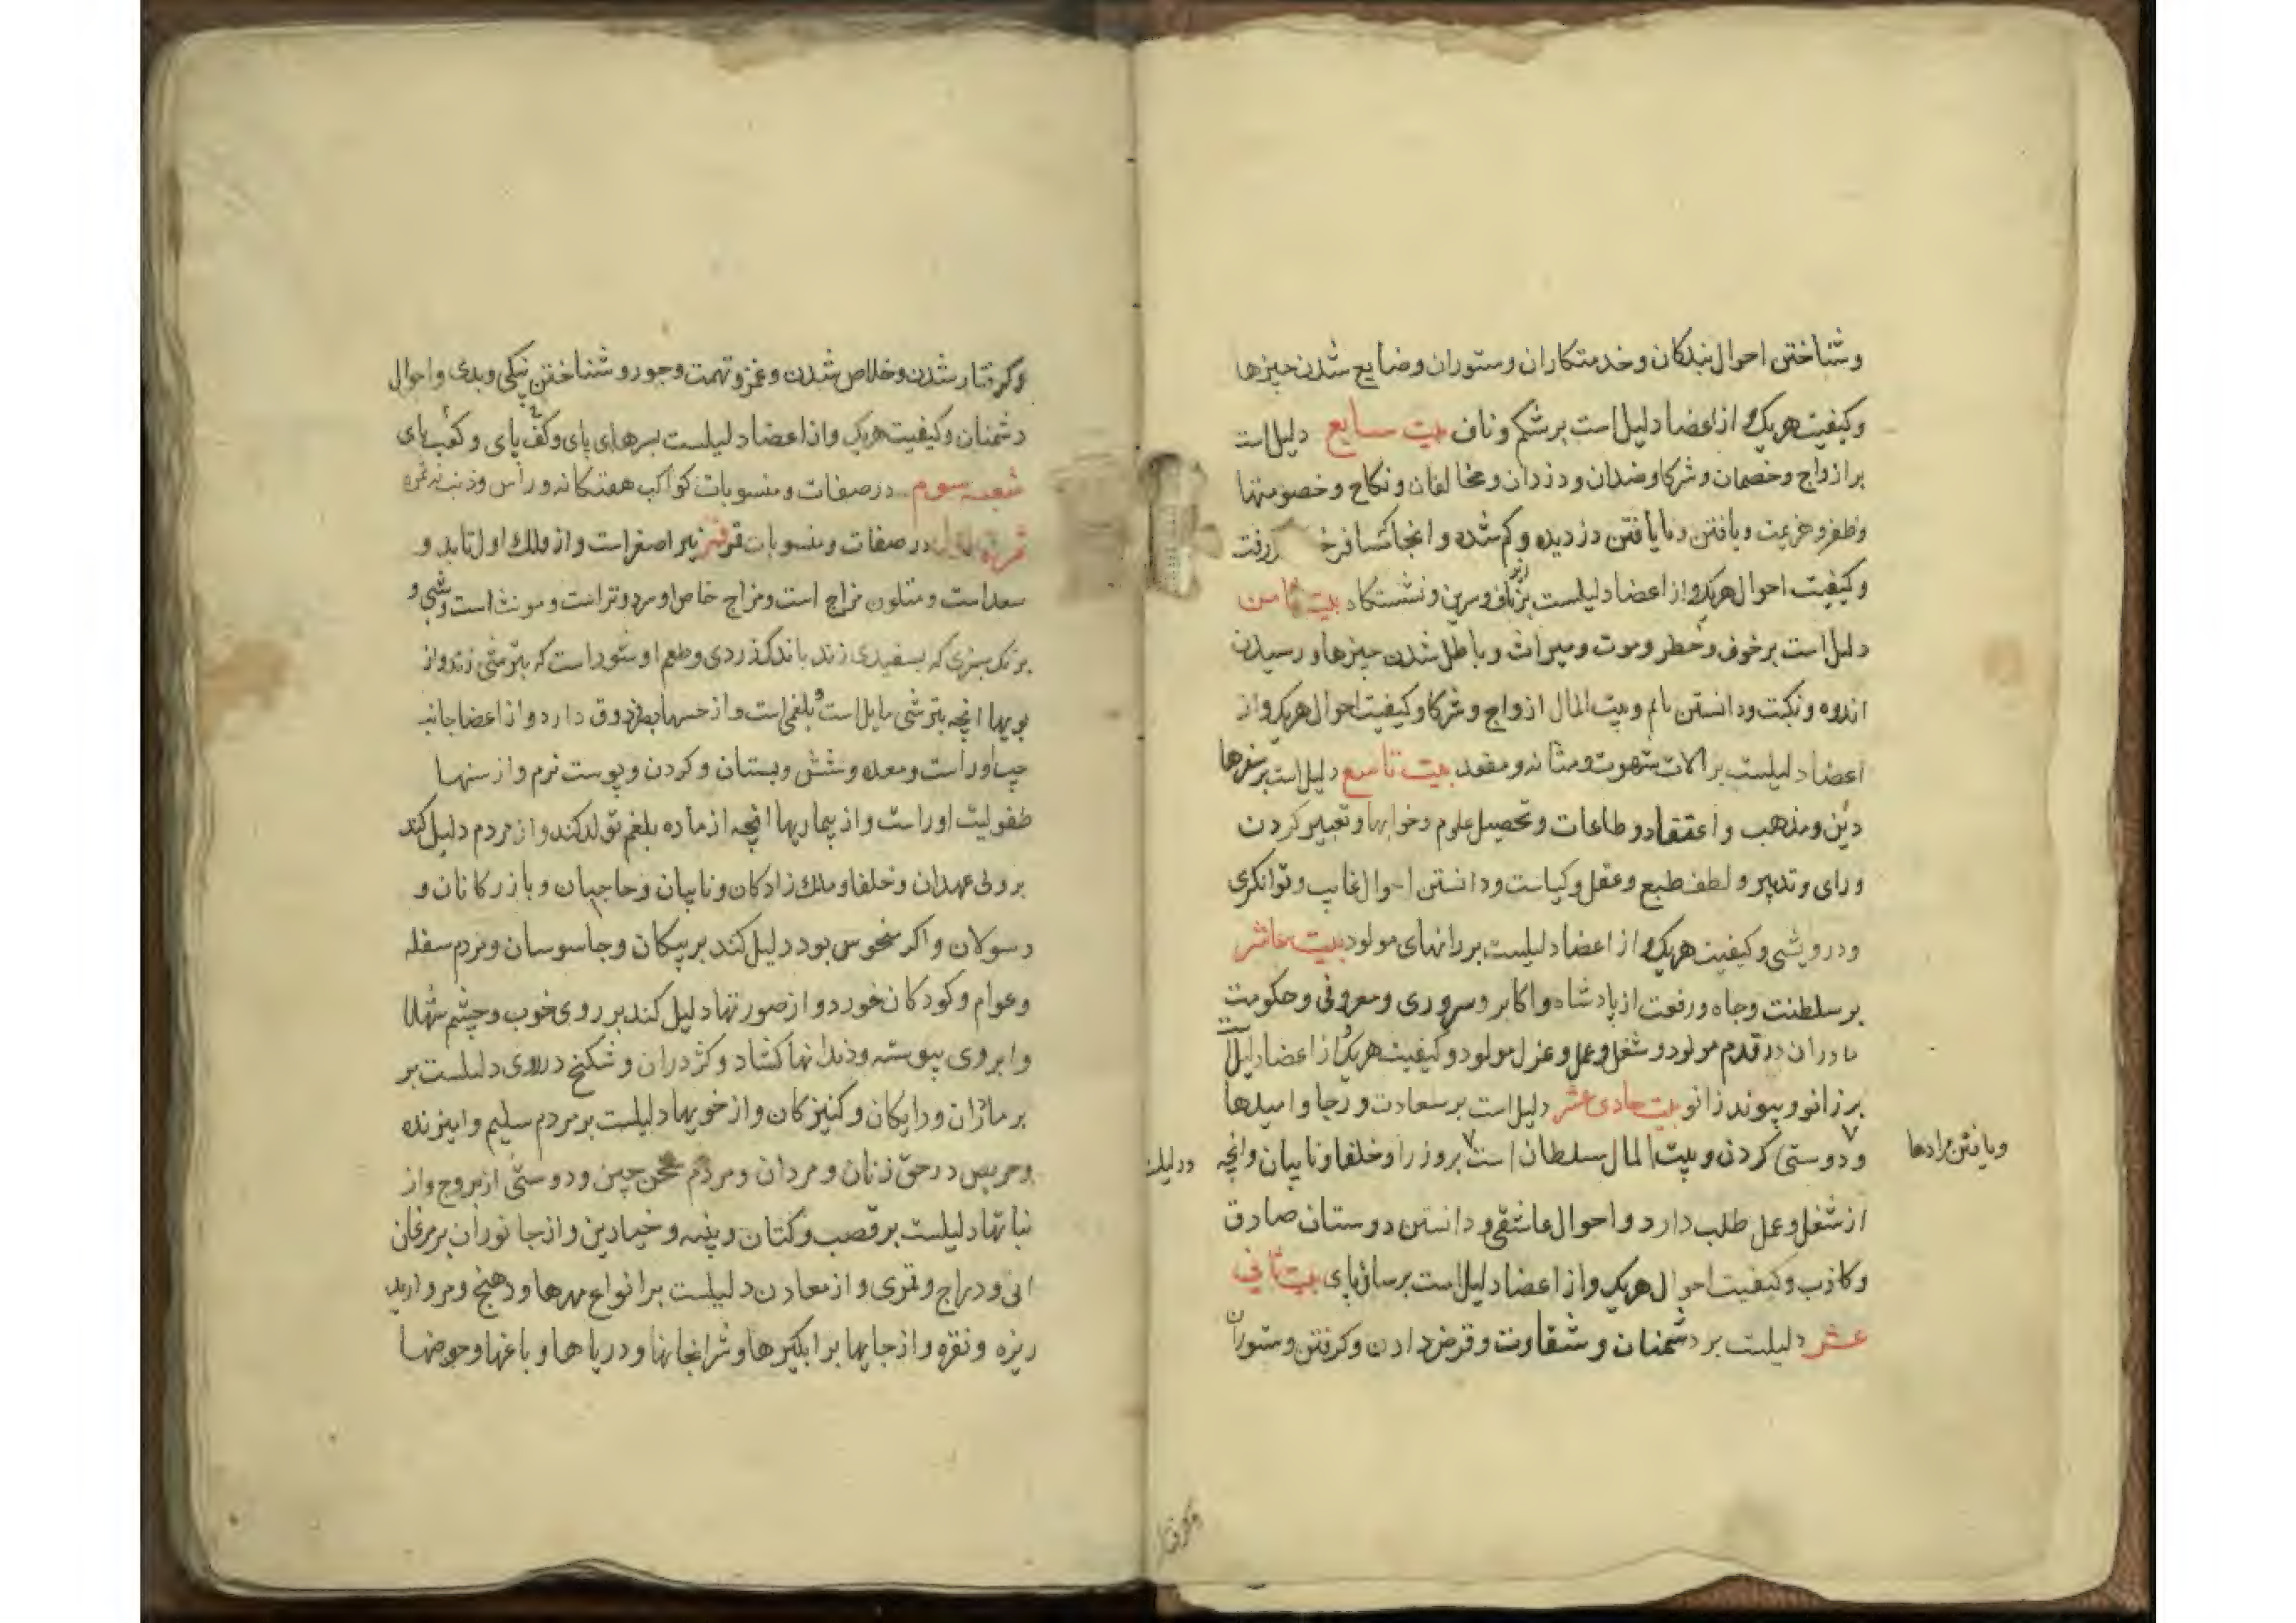 وشناختن احوال بندکان وخدمتکاران وستوران وضایع شدن چیزها
وکیفیت هریک و از اعضا دلیل است برشکم و ناف بیت سابع دلیل است
بر ازواج وخصمان وشرکا وضدان ودزدان ومخالفان ونکاح وخصومتها
وظفر وهزیمت ویافتن ونایافتن دزدیده وکم شده وانجا کمسافر رفت
وکیفیت احوال هریک واز اعضا دلیلست برناف وسرین ونشستکاه بیت ثامن
زیر
دلیل است برخوف وخطر وموت ومیراث وباطل شدن چیزها ورسیدن
اندوه ونکبت ودانستن وبیت المال ازواج وشرکا وکیفیت احوال هریک واز
اعضا دلیلست بر الات شهوت ومثانه ومقعد بیت تاسع دلیل است برسفرها
دین ومذهب واعتقاد وطاعات وتحصیل علوم وخوابها وتعبیر کردن
ورای وتدبیر ولطف طبع وعقل وکیاست ودانستن احوال غایب وتوانکری
ودرویشی وکیفیت هریک و از اعضا دلیلست بر رانهای مولود بیت عاشر
بر سلطنت وجاه ورفعت از پادشاه واکابر وسروری ومعروفی وحکومت
مادران در قدم مولود وشغل وعمل وعزل مولود وکیفیت هریک و از اعضا دلیل است
بر زانو وپیوند زانو بیت حادی عشر دلیل است بر سعادت ورجا وامیدها
ویافتن مرادها
ودوستی کردن وبیت المال سلطان است بروز را وخلفا ونایبان وانچه
ودلیلست
از شغل وعمل طلب دارد واحوال عاشقی ودانستن دوستان صادق
وکاذب وکیفیت احوال هریک واز اعضا دلیل است برساق پای بیت ثانی
عشر دلیلست بر دشمنان وشقاوت وقرض دادن وکرفتن وستوران
وکرفتار
وکرفتار شدن وخلاص شدن وغمز وتهمت وجور وشناختن نیکی وبدی واحوال
دشمنان وکیفیت هریک واز اعضا دلیلست بسرهای پای وکف پای وکعب پای
شعبه سوم در صفات ومنسوبات کواکب هفتکانه وراس وذنب نه ثمره
ثمره اول در صفات ومنسوبات قمر قمر نیر اصغر است واز فلک اول تابد و
سعد است ومتلون مزاج است ومزاج خاص او سرد وتر است ومونث است وشبی و
برنک سبزی که بسفیدی زند باندک زردی وطعم او شور است که بترشی زند واز
بویها انچه بترشی مایل است و بلغمی است واز حسها بصر وذوق دارد واز اعضا جانب
چپ او راست ومعده وشش وپستان وکردن وپوست نرم واز سنها
طفولیت او راست واز بیماریها انچه از ماده بلغم تولد کند واز مردم دلیل کند
بر ولی عهدان وخلفا وملک زادکان ونایبان وحاجبان وبازرکانان و
رسولان واکر منحوس بود دلیل کند بر پیکان وجاسوسان ومردم سفله
وعوام وکودکان خورد و از صورتها دلیل کند بر روی خوب وچشم شهلا
وابروی پیوسته ودندانها کشاد وکژ دران وشکنج در روی دلیلست بر
بر مادران ودایکان وکنیزکان واز خویها دلیلست بر مردم سلیم وامیزنده
وحریص در حق زنان ومردان ومردم سخن چین ودوستی از بروج واز
نباتها دلیلست بر قصب وکتان وپنبه وخیارین واز جانوران بر مرغان
ابی ودراج وقمری واز معادن دلیلست بر انواع مهرها ودهنج ومروارید
ریزه ونقره واز جایها بر ابکیرها وشرابخانها ودریاها وباغها وحوضها